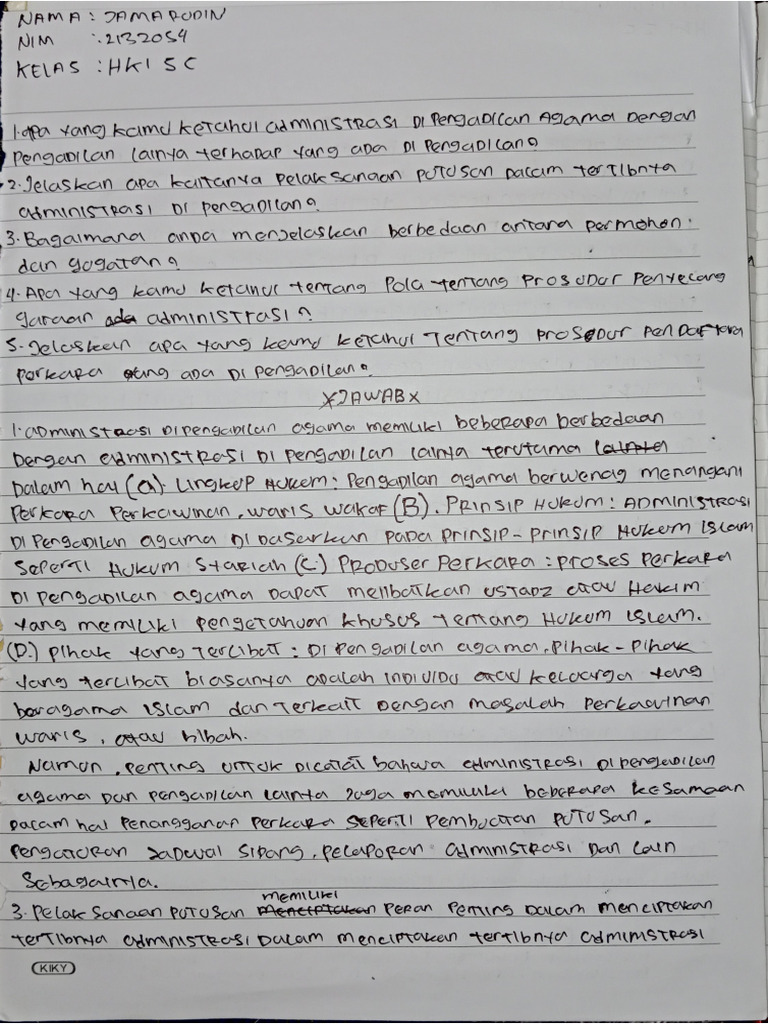 NAMA : JAMARUDIN
NIM : 2132054
KELAS : HKI 5C
1. apa yang kamu ketahui administrasi di Pengadilan Agama Dengan
Pengadilan lainya terhadap yang ada di Pengadilan?
2. Jelaskan apa kaitanya pelaksanaan putusan dalam tertibnya
administrasi di pengadilan?
3. Bagaimana anda menjelaskan berbedaan antara permohon.
dan gugatan?
4. Apa yang kamu ketahui tentang Pola tentang Prosudur Penyelang
garaan administrasi?
5. Jelaskan apa yang kamu ketahui tentang prosedur pendaftaran
perkara yang ada di pengadilan?
XJAWABX
1. administrasi dipengadilan agama memiliki beberapa berbedaan
Dengan administrasi di pengadilan lainya terutama
Dalam hal (a) Lingkup Hukum : Pengadilan agama berwenag menangani
Perkara Perkawinan, waris wakaf (B). Prinsip Hukum : Administrasi
di pengadilan agama di dasarkan pada prinsip-prinsip Hukum Islam
Seperti Hukum Stariah (C) Produser Perkara : proses Perkara
Di pengadilan agama dapat melibatkan ustadz atau Hakim
yang memiliki pengetahuan khusus tentang Hukum Islam.
(D.) Pihak yang Terlibat : Di Pengadilan agama, Pihak-Pihak
yang terlibat biasanya adalah individu atau keluarga yang
beragama Islam dan Terkait Dengan masalah Perkawinan
waris, atau hibah.
Namun, penting untuk dicatat bahawa administrasi di pengadilan
agama dan pengadilan lainya juga memiliki beberapa kesamaan
Dalam hal Penangganan Perkara seperti Pembuatan Putusan.
Pengaturan Jadwal Sidang, Pelaporan administrasi dan lain
Sebagainya.
3. Pelaksanaan Putusan memiliki Peran Penting dalam menciptakan
tertibnya administrasi dalam menciptakan tertibnya administrasi
KIKY